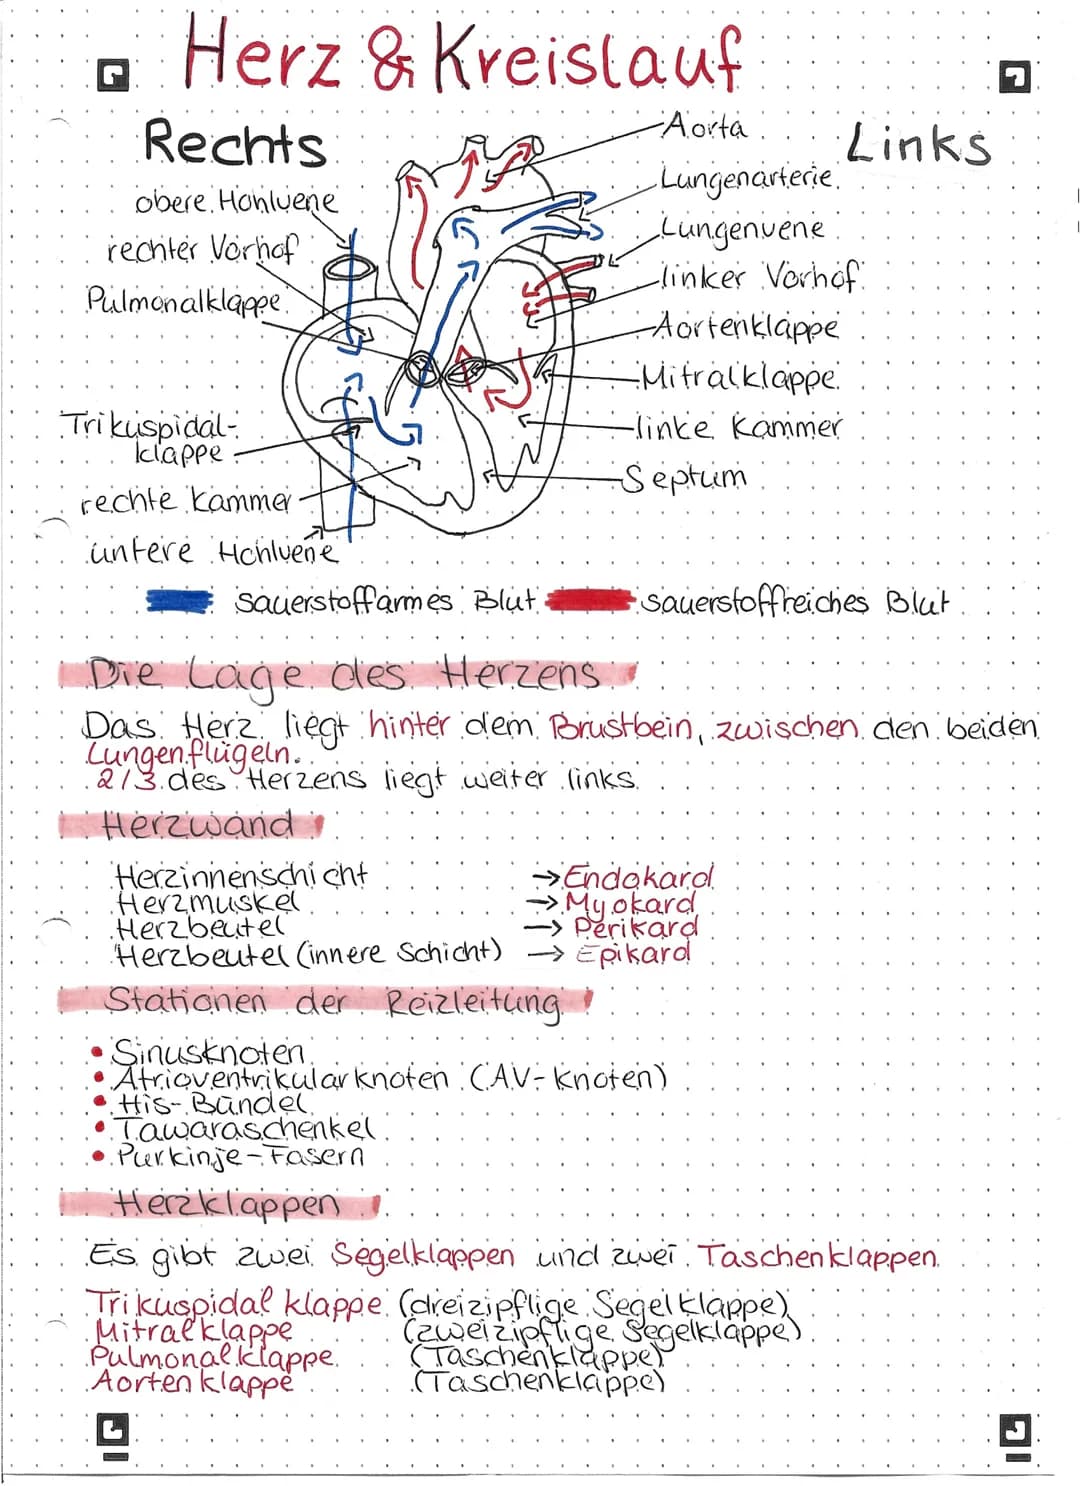 Herz & Kreislauf
Rechts
Links
obere Hohlvene
rechter Vorhof
Pulmonalklappe
Trikuspidal-
klappe
rechte Kammer
untere Hohlvene
Aorta
Lungenarterie
Lungenvene
linker Vorhof
Aortenklappe
Mitralklappe
linke Kammer
Septum
Sauerstoffarmes Blut
Sauerstoffreiches Blut
Die Lage des Herzens
Das Herz liegt hinter dem Brustbein, zwischen den beiden
Lungenflügeln.
2/3 des Herzens liegt weiter links.
Herzwand
Herzinnenschicht → Endokard
Herzmuskel → Myokard
Herzbeutel → Perikard
Herzbeutel (innere Schicht) → Epikard
Stationen der Reizleitung
• Sinusknoten
• Atrioventrikularknoten (AV-Knoten)
• His-Bündel
• Tawaraschenkel
• Purkinje-Fasern
Herzklappen
Es gibt zwei Segelklappen und zwei Taschenklappen.
Trikuspidalklappe (dreizipflige Segelklappe)
Mitralklappe (zweizipflige Segelklappe)
Pulmonalklappe (Taschenklappe)
Aortenklappe (Taschenklappe)